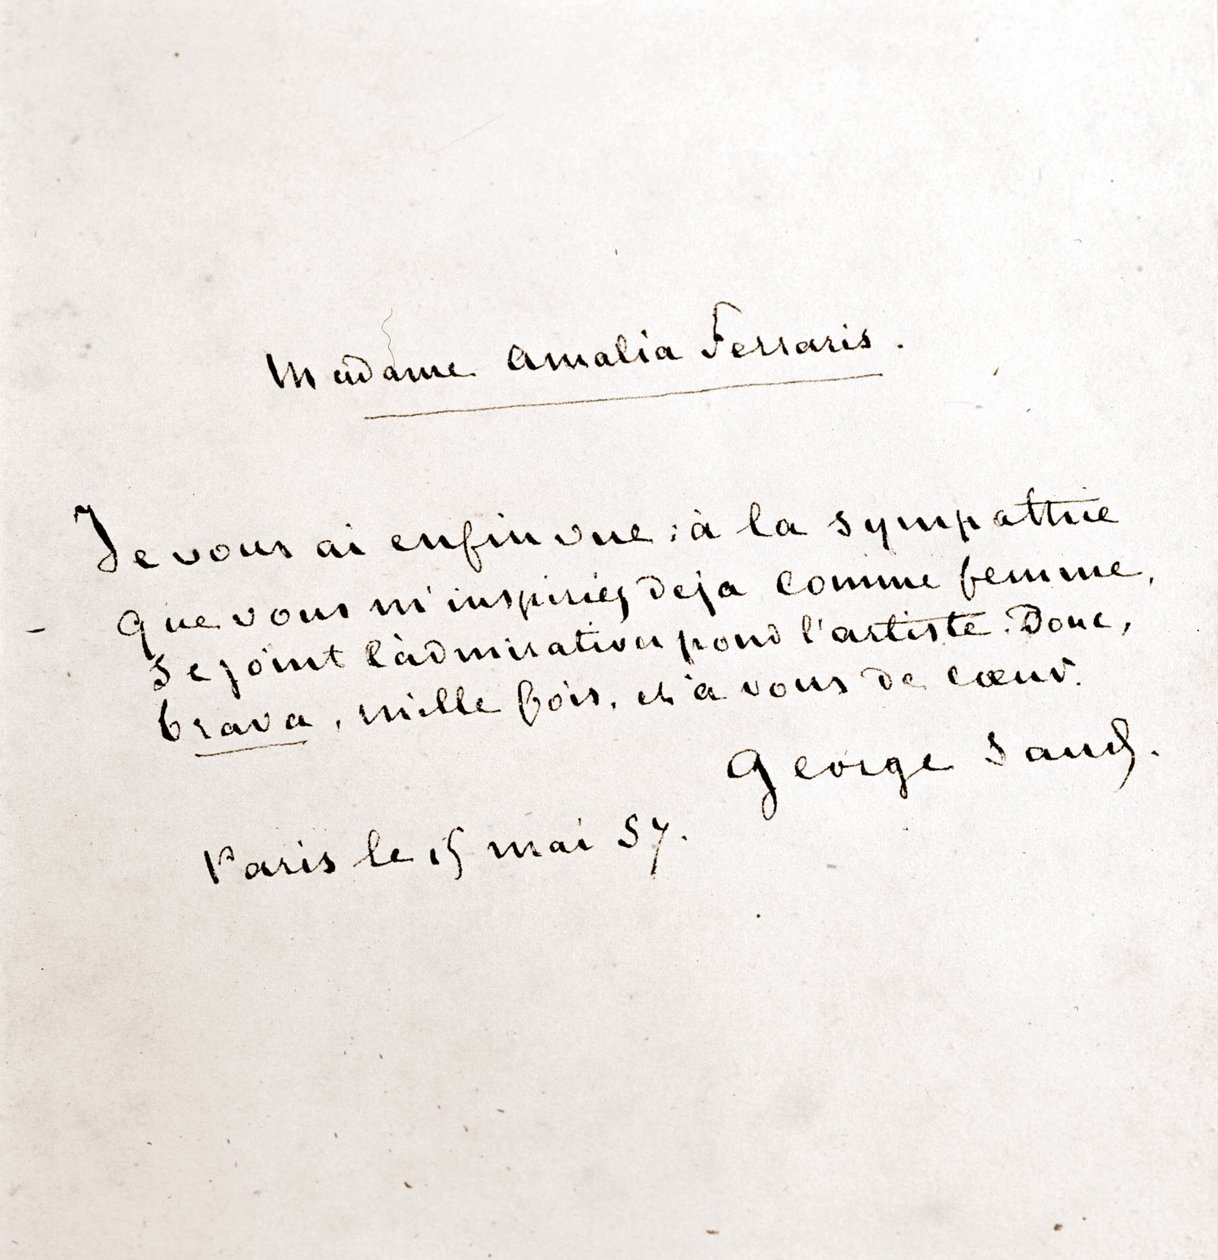 Madame Amalia Ferraris.
Je vous ai enfin vue ; à la sympathie
que vous m'inspiriez deja comme femme,
se joint l'admiration pour l'artiste. Donc,
brava, mille fois, et à vous de cœur.
George Sand.
Paris le 15 mai 57.